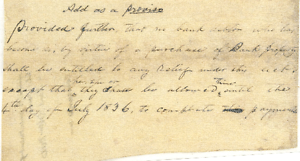 Add as a proviso
Provided further that no such person who has
become so, by virtue of a purchase of Bank property
shall be entitled to any relief under this act,
except that they shall be allowed time until the
4th day of July 1836, to complete payment